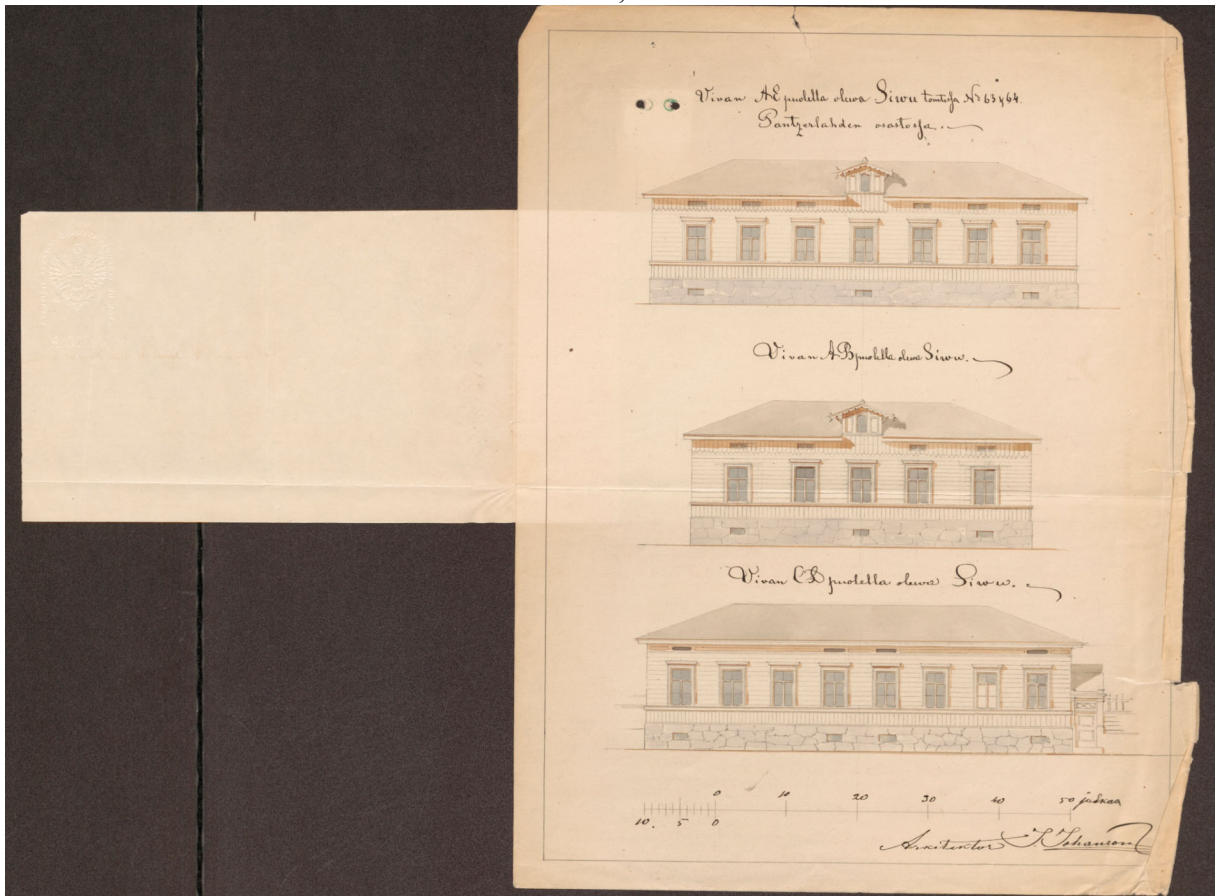 Vivan AE puolella olewa Siwu tontissa No 63 y 64.
Pantzerlahden osastossa.
Vivan AB puolella olewa Siwu.
Vivan CD puolella olewa Siwu.
0 10 20 30 40 50 jalkaa
10. 5 0
Arkitektor J. Johanson